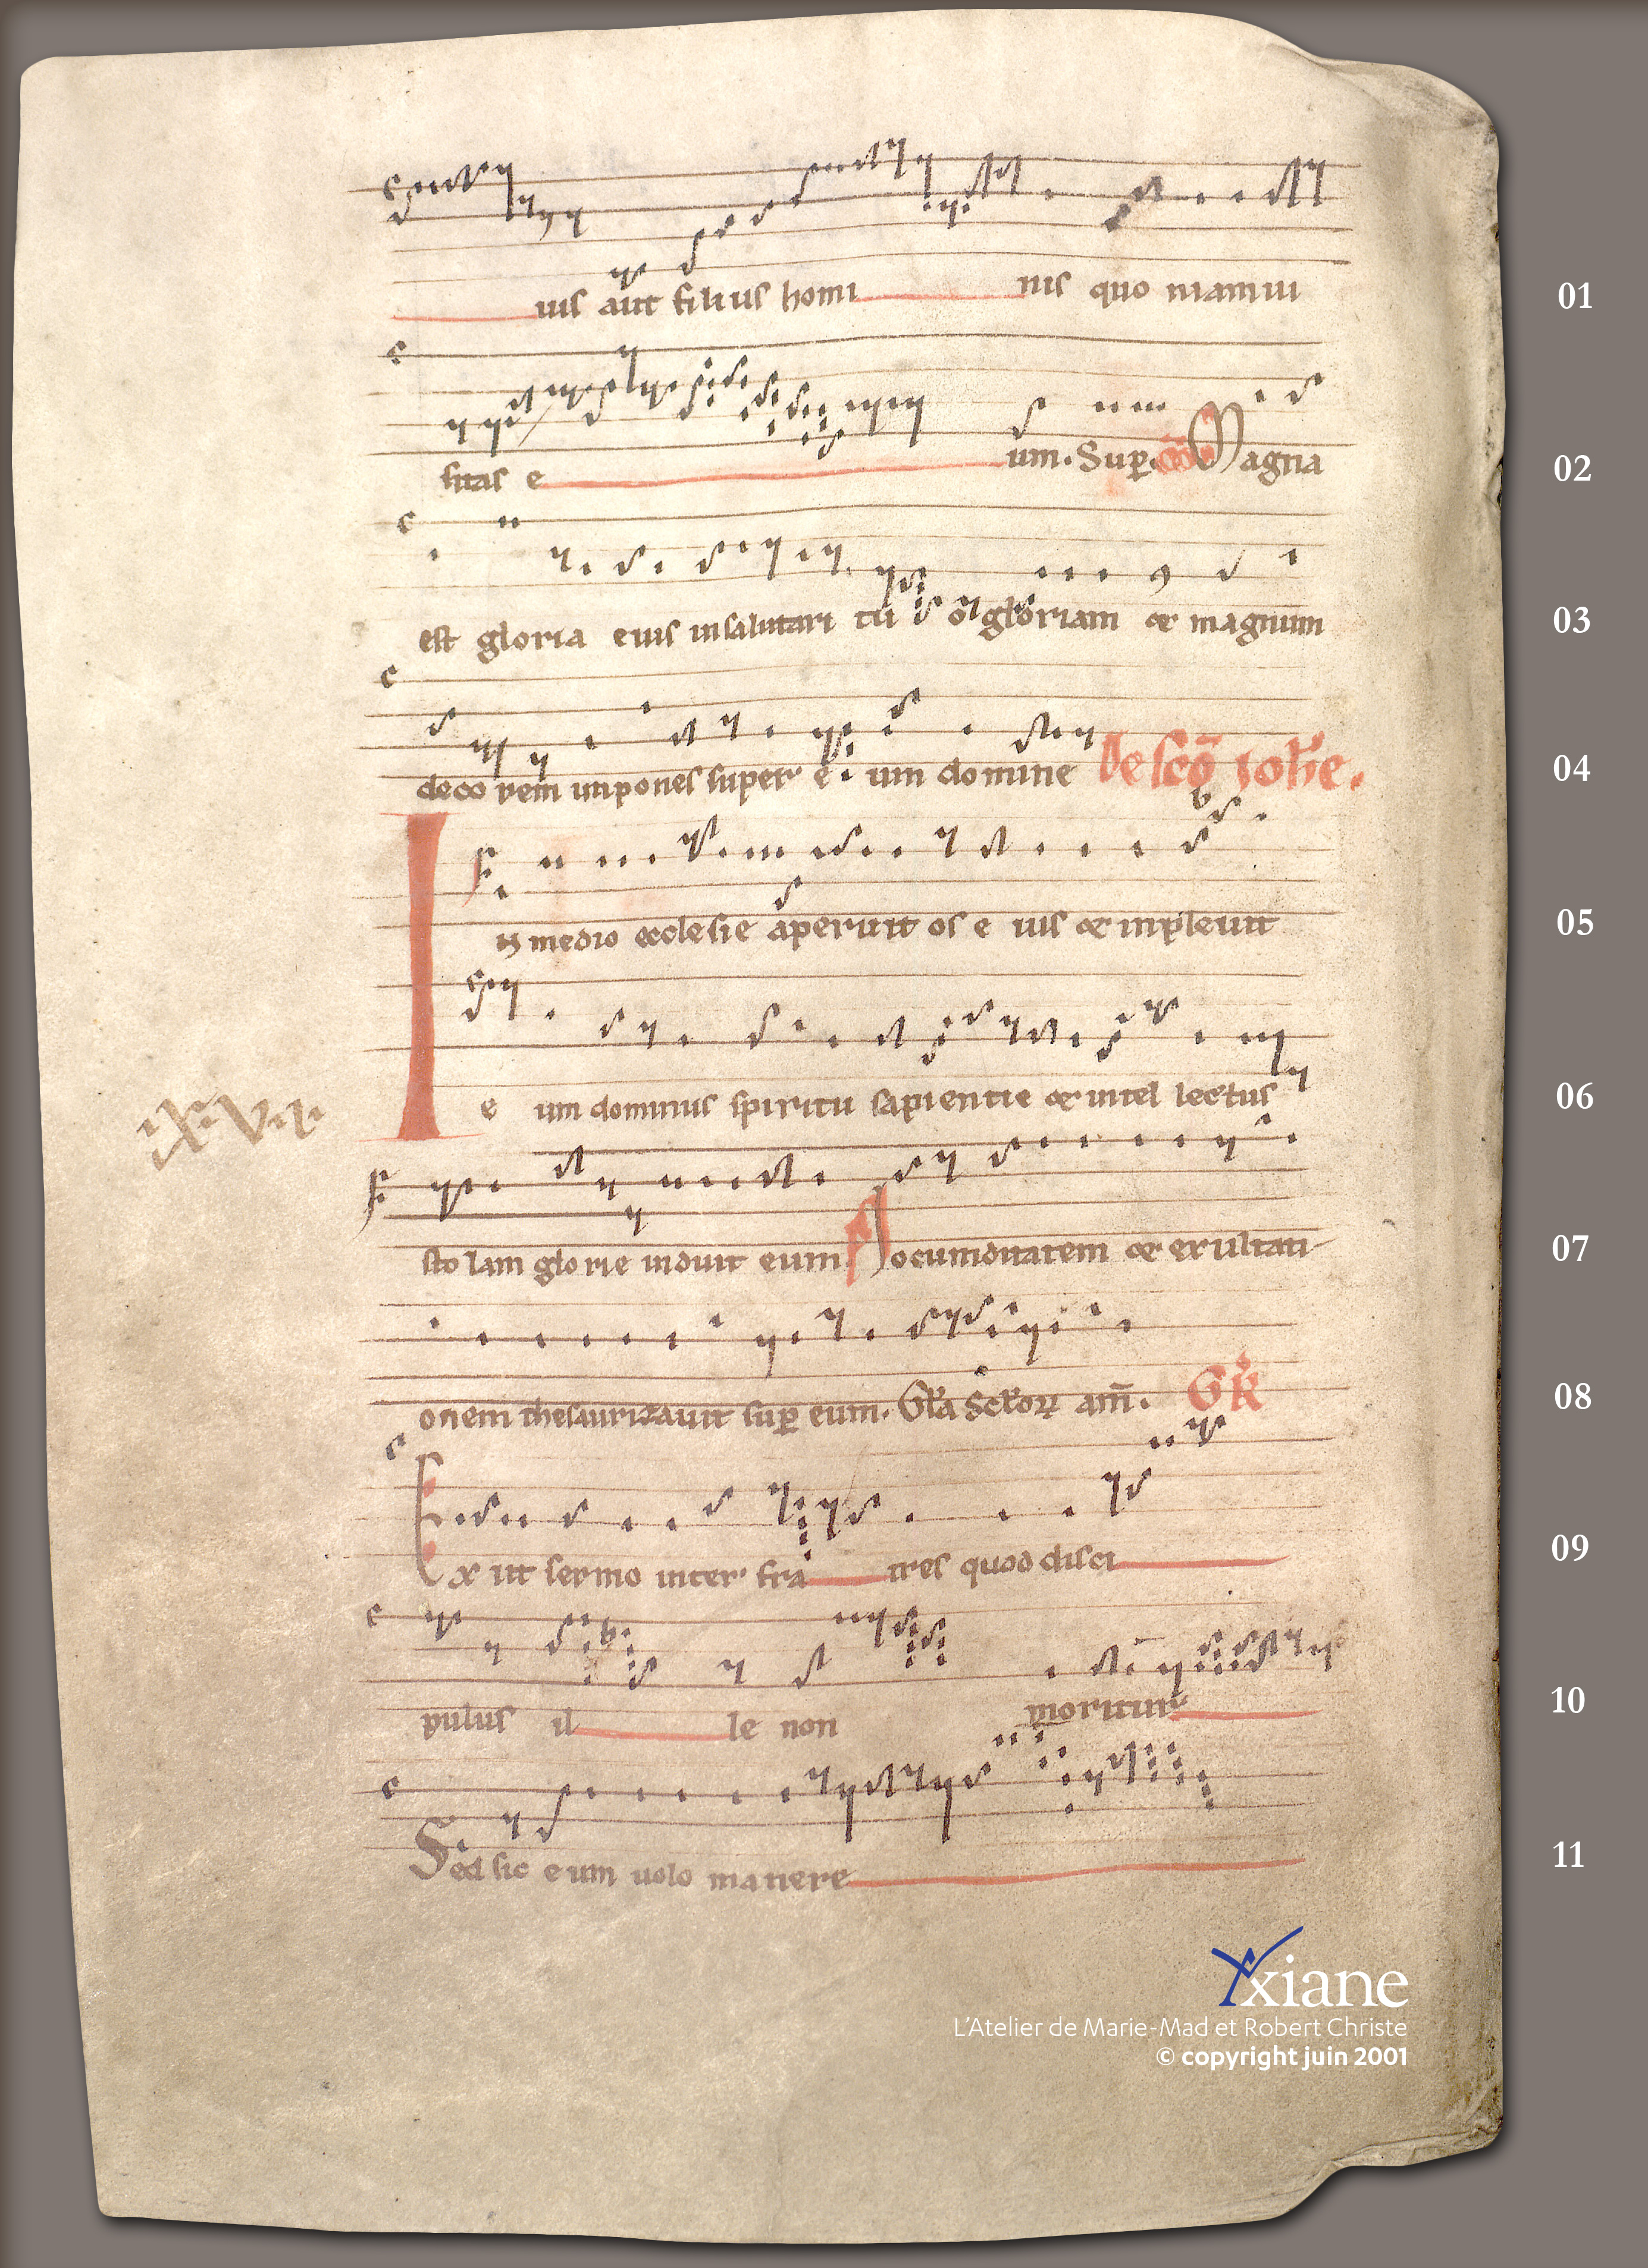 uis aut filius homi nis quo niam ui
sitas e um. Sup̲. Magna
est gloria eius in salutari tu o gloriam & magnum
deco rem impones super e um domine De sc̄o ioh̄e.
In medio ecclesie aperuit os e ius & inpleuit
e um dominus spiritu sapientie & intel lectus
sto lam glorie induit eum Iocunditatem & exultati-
onem thesaurizauit sup̲ eum. Gl̄a Sc̄lor̄ am̄. GR̄
Ex iit sermo inter fra tres quod disci
pulus il le non moritur
Sed sic e um uolo manere
ixvi
01
02
03
04
05
06
07
08
09
10
11
Yxiane
L'Atelier de Marie-Mad et Robert Christe
© copyright juin 2001